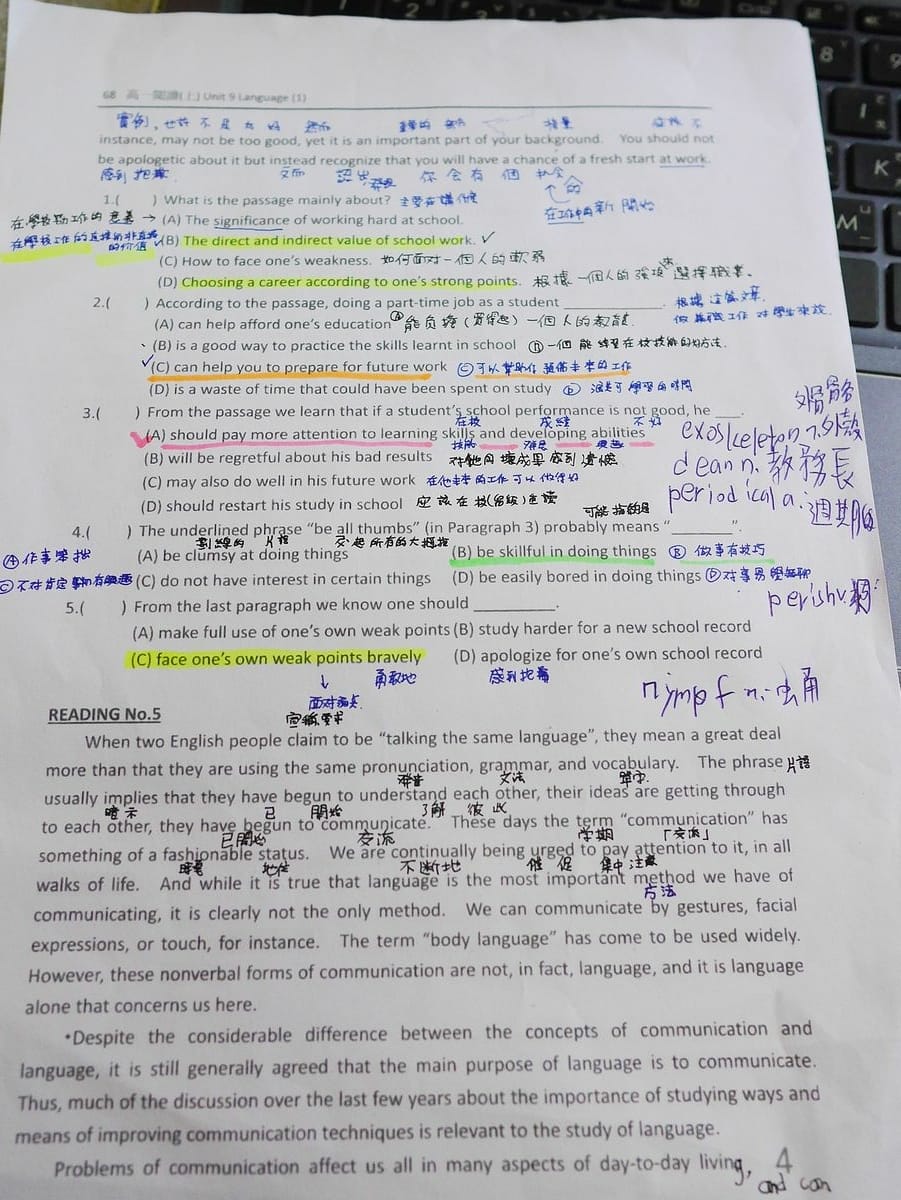 68 高一閱讀(上) Unit 9 Language (1)
實例, 也許 不 是 太 好 然而 重要的 部分 背景 應該 不
instance, may not be too good, yet it is an important part of your background. You should not
be apologetic about it but instead recognize that you will have a chance of a fresh start at work.
感到 抱歉 反而 認出, 發現 你 會 有 個 機會
在工作中的新 開始
1.( ) What is the passage mainly about? 主要在講什麼
在學校努力工作的 意義 → (A) The significance of working hard at school.
在學校工作的直接和非直接的价值 ✓(B) The direct and indirect value of school work. ✓
(C) How to face one's weakness. 如何面对一個人的軟弱
(D) Choosing a career according to one's strong points. 根據一個人的強項來選擇職業.
2.( ) According to the passage, doing a part-time job as a student ____________. 根據這篇文章,
做兼職工作 对學生來說
(A) can help afford one's education Ⓐ能负擔(買得起)一個人的教育.
(B) is a good way to practice the skills learnt in school Ⓑ一個能練習在校技能的好方法.
✓(C) can help you to prepare for future work Ⓒ可以幫助你準備未來的工作
(D) is a waste of time that could have been spent on study Ⓓ 浪費可學習的時間
3.( ) From the passage we learn that if a student's school performance is not good, he ___.
在校 成績 不好
✓(A) should pay more attention to learning skills and developing abilities
技能
(B) will be regretful about his bad results 对他的壞成果感到遺憾
(C) may also do well in his future work 在他未來的工作可以做得好
(D) should restart his study in school 应该在校(留級)重讀
外骨骼
exoskeleton n.外殼
dean n. 教務長
periodical a. 週期
可能指的是
4.( ) The underlined phrase "be all thumbs" (in Paragraph 3) probably means "________".
劃線的 片語
Ⓐ作事笨拙 (A) be clumsy at doing things (B) be skillful in doing things Ⓑ 做事有技巧
Ⓒ不对肯定事物有興趣 (C) do not have interest in certain things (D) be easily bored in doing things Ⓓ对事易感無聊
perish v.
5.( ) From the last paragraph we know one should __________.
(A) make full use of one's own weak points (B) study harder for a new school record
(C) face one's own weak points bravely (D) apologize for one's own school record
↓ 勇敢地 感到抱歉
面对弱点
nympf n. 虫蛹
READING No.5
宣稱,要求
When two English people claim to be "talking the same language", they mean a great deal
more than that they are using the same pronunciation, grammar, and vocabulary. The phrase 片語
發音 文法 單字.
usually implies that they have begun to understand each other, their ideas are getting through
暗示 已 開始 了解 彼此
to each other, they have begun to communicate. These days the term "communication" has
已開始 交流 学期 「交流」
something of a fashionable status. We are continually being urged to pay attention to it, in all
時髦 地位 不斷地 催 促 集中注意
walks of life. And while it is true that language is the most important method we have of
方法
communicating, it is clearly not the only method. We can communicate by gestures, facial
expressions, or touch, for instance. The term "body language" has come to be used widely.
However, these nonverbal forms of communication are not, in fact, language, and it is language
alone that concerns us here.
Despite the considerable difference between the concepts of communication and
language, it is still generally agreed that the main purpose of language is to communicate.
Thus, much of the discussion over the last few years about the importance of studying ways and
means of improving communication techniques is relevant to the study of language.
Problems of communication affect us all in many aspects of day-to-day living, 4
and can